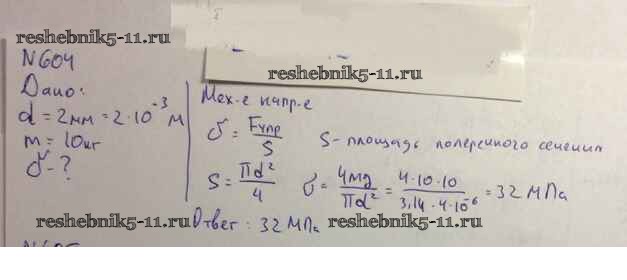 reshebnik5-11.ru
N604
reshebnik5-11.ru
Дано:
d = 2мм = 2·10⁻³ м
m = 10кг
σ - ?
Мех-е напр-е
σ = Fупр/S
S - площадь поперечного сечения
S = πd²/4
σ = 4mg/πd² = 4·10·10/3,14·4·10⁻⁶ = 32 МПа
reshebnik5-11.ru
Ответ: 32 МПа
reshebnik5-11.ru